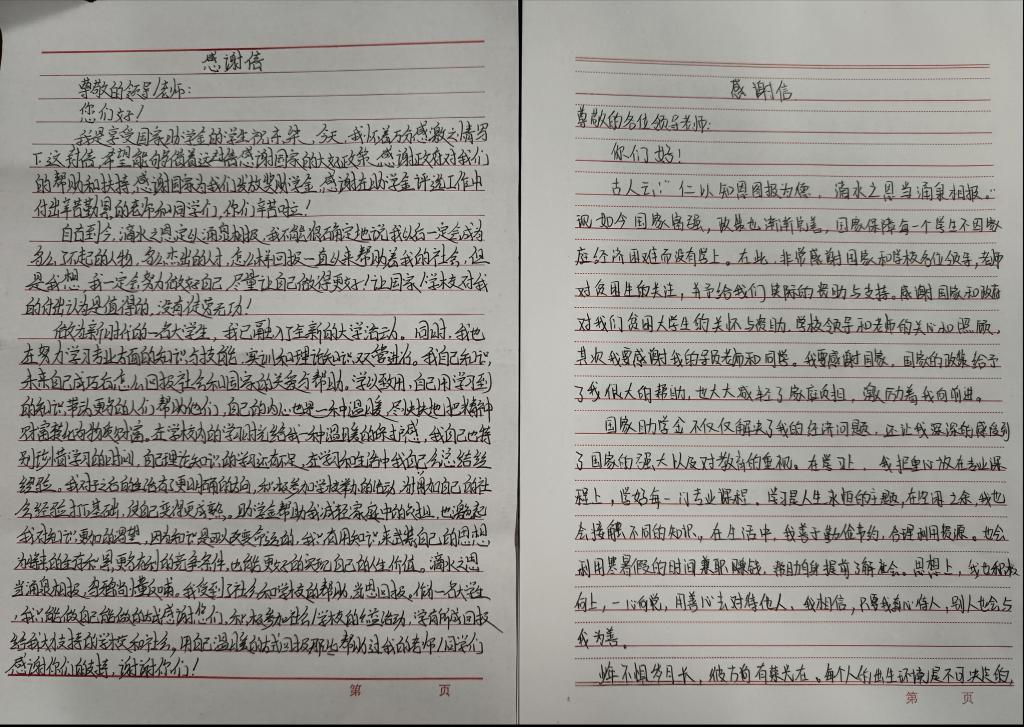 感谢信
尊敬的领导/老师:
您们好!
我是享受国家助学金的学生祝,今天,我怀着万分感激之情写
下这封信,希望能够借着这封信感谢国家的大好政策,感谢政府对我们
的帮助和扶持,感谢国家为我们发放奖助学金,感谢在助学金评选工作中
付出辛苦勤累的老师和同学们,你们辛苦啦!
自古到今,滴水之恩定以涌泉相报,我不能很确定地说我以后一定会成为
多么了不起的人物,多么杰出的人才,怎么样回报一直以来帮助着我的社会,但
是我想,我一定会努力做好自己,尽量让自己做得更好!让国家/学校对我
的付出认为是值得的,没有徒劳无功!
做为新时代的一名大学生,我已融入了全新的大学活动。同时,我也
在努力学习专业方面的知识与技能,实训和理论知识双管进行。我自己知识,
未来自己成功后怎么回报社会和国家的关爱与帮助。学以致用,自己用学习到
的知识,带动更多的人们帮助他们,自己的内心也是一种温暖,尽快快地把精神
财富转化为物质财富。在学校内的学习时光给我一种温暖的归感,我自己也特
别珍惜学习的时间,自己理论知识的学习还有不足,在学习和生活中我自己多总结经
经验。我对于后的生活有了更明确的方向,积极参加学校举办的活动,对增加自己的社
会经验打下基础,使自己变得更成熟。助学金帮助我减轻家庭中的负担,也激起
我对知识更加的渴望,因为知识是可以改变命运的,我只有用知识来武装自己的思想
为特的生存如果更有利的竞争条件,也能更好的实现自己的人生价值。滴水之恩
当涌泉相报,乌鸦尚懂反哺。我受到了社会和学校的帮助,当思回报。作为一名大学生
,我只能做自己能做的来感谢你们,积极参加社会/学校的公益活动,学有所成回报
给我大力支持的学校和社会,用自己温暖的方式回报那些帮助过我的老师/同学们
感谢你们的支持,谢谢你们!
第 页
感谢信
尊敬的各位领导老师:
你们好!
古人云:“仁以知恩图报为德,滴水之恩当涌泉相报。”
现如今国家富强,政策也渐渐完善,国家保障每一个学生不因家
庭经济困难而没学上。在此,非常感谢国家和学校各位领导,老师
对贫困生的关注,并予给我们实际的资助与支持。感谢国家和政府
对我们贫困大学生的关怀与资助,学校领导和老师的关心和照顾,
其次我要感谢我的学校老师和同学。我要感谢国家,国家的政策给予
了我很大的帮助,也大大减轻了家庭负担,激励着我向前进。
国家助学金不仅仅解决了我的经济问题,还让我深深的感受到
了国家的强大以及对教育的重视。在学习上,我把重心放在专业课
程上,学好每一门专业课程。学习是人生永恒的主题,在空闲之余,我也
会接触不同的知识。在生活中,我善于勤俭节约,合理利用资源。也会
利用寒暑假的时间兼职赚钱,帮助自身提前了解社会。思想上,我也积极
向上,一心向党,用善心去对待他人,我相信,只要我真心待人,别人也会与
我为善。
峥不惧岁月长,彼方尚有荣光在。每个人的出生环境是不可决定的,
第 页